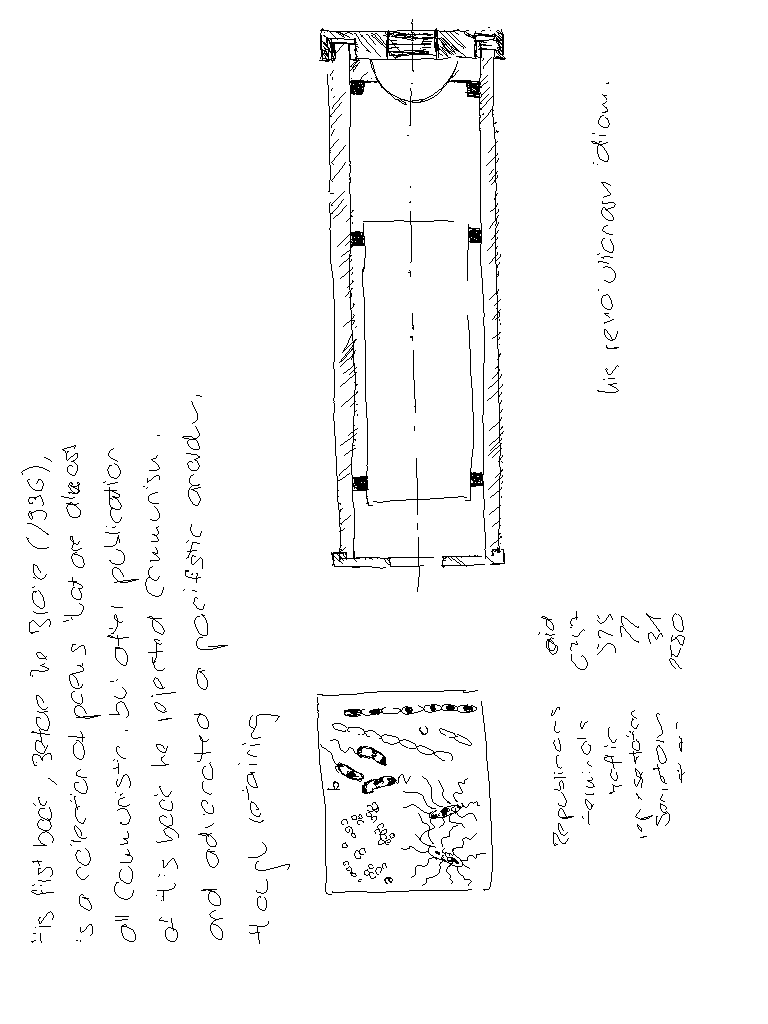 is first book, Before the Brave (1936),
is a collection of poems that are almost
all Communistic, but after publication
of this book he rejected Communism.
and advocated a pacifistic anarchy,
though retaining
his revolutionary idiom.
Republicans aid
575
traffic 77
31
1580
b
c
e